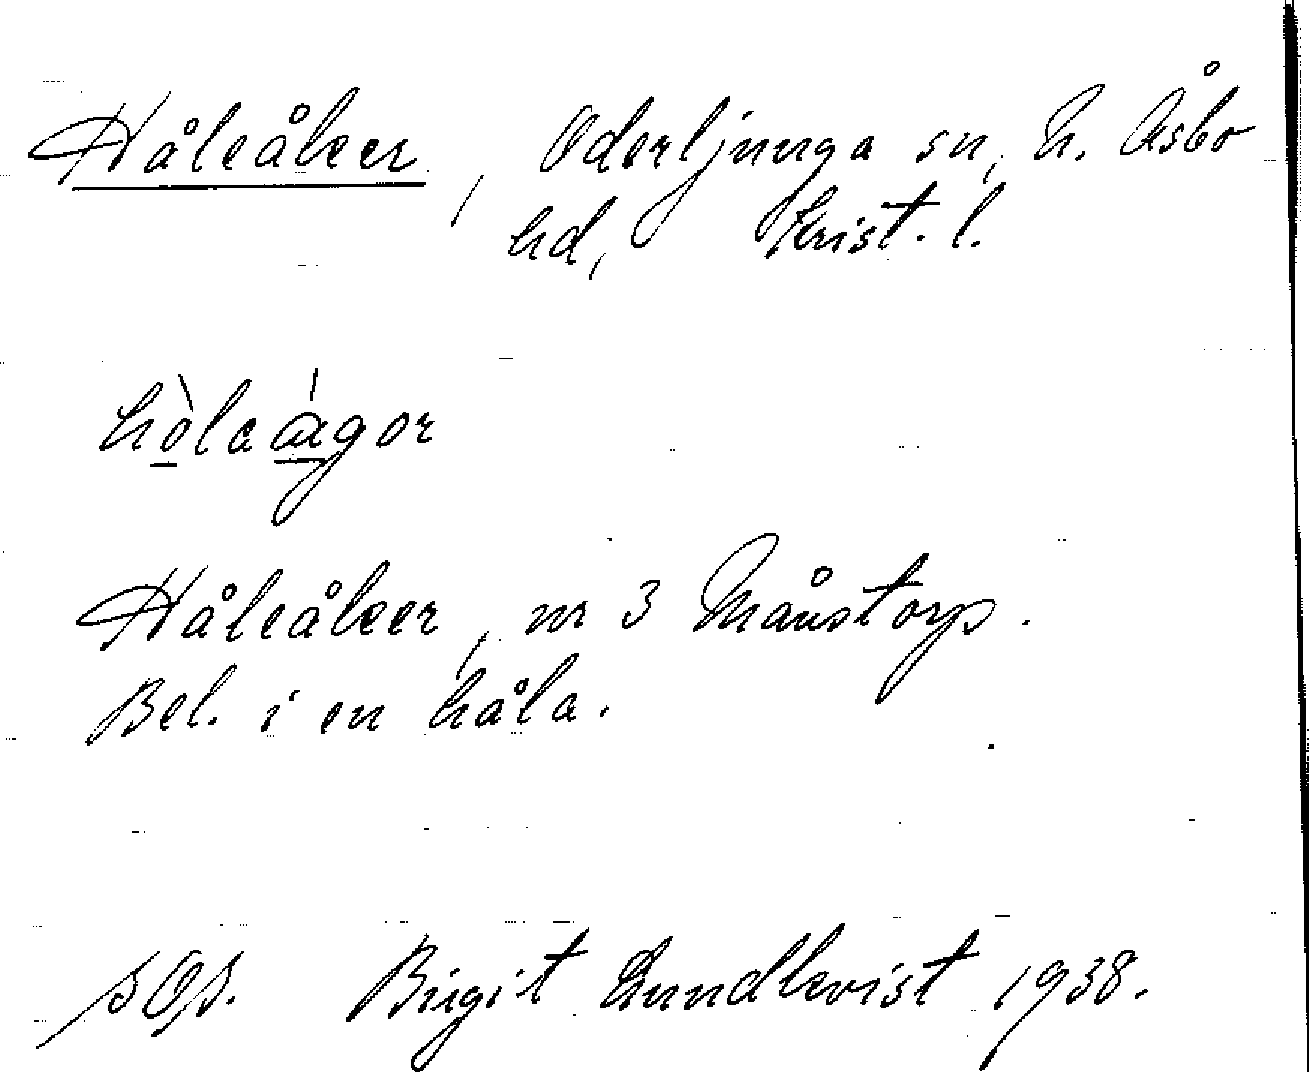 Håleåker, Oderljunga sn, N. Åsbo
hd, Krist. l.
hòleågor
Håleåker, nr 3 Månstorp.
Bel. i en håla.
SOS. Birgit Lundkvist 1938.